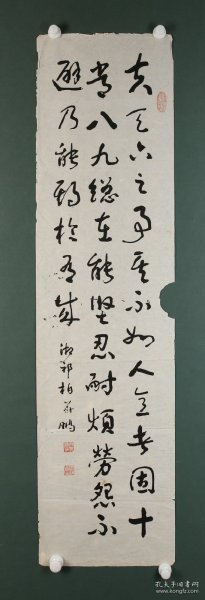 夫天下之事其不如人意者固十
常八九總在能堅忍耐煩勞怨不
避乃能期於有成
湘鄉柏荇鵬
孔夫子旧书网